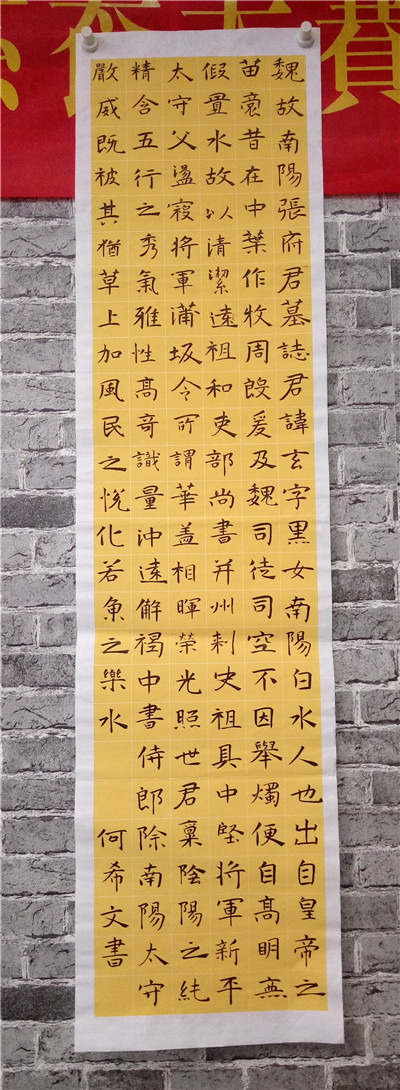 魏故南陽張府君墓誌君諱玄字黑女南陽白水人也出自皇帝之
苗裔昔在中葉作牧周殷爰及魏司徒司空不因舉燭便自高明無
假置水故以清潔遠祖和吏部尚書并州刺史祖具中堅將軍新平
太守父盪寇將軍蒲坂令所謂華蓋相暉榮光照世君稟陰陽之純
精含五行之秀氣雅性高奇識量沖遠解褐中書侍郎除南陽太守
嚴威既被其猶草上加風民之悅化若魚之樂水 何希文書